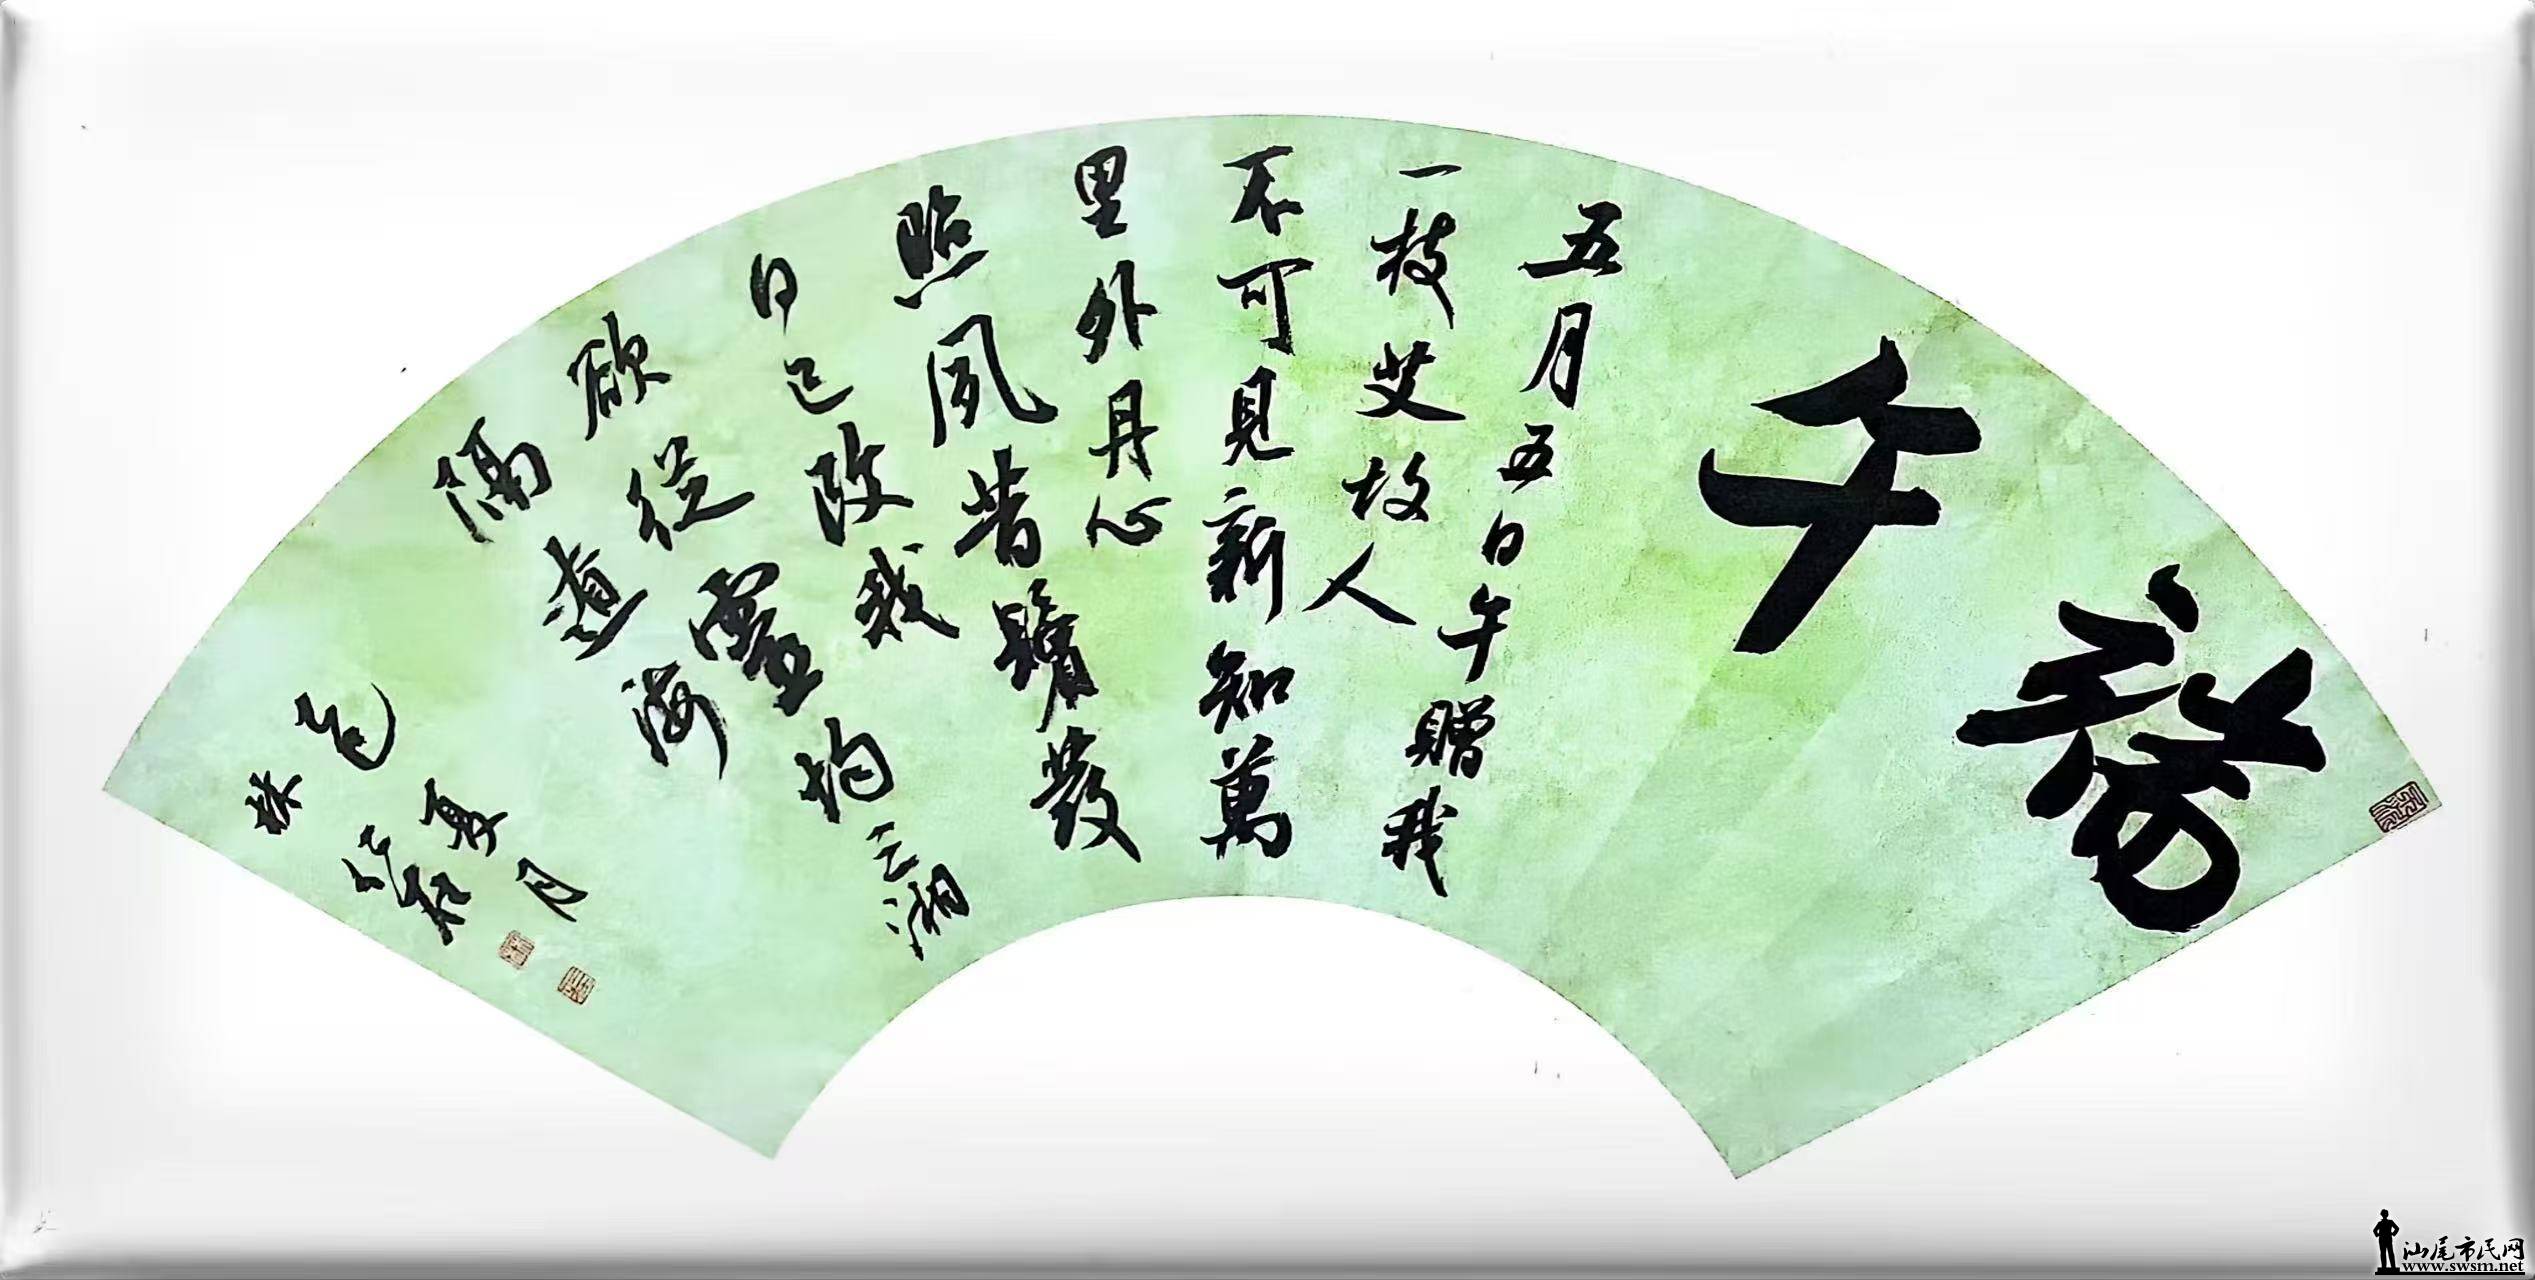 端午
五月五日午贈我
一枝艾故人
不可見新知萬
里外丹心
照夙昔鬢發
日已改我
欲從靈均三湘
隔遼海
夏月
林
汕尾市民网
www.swsm.net